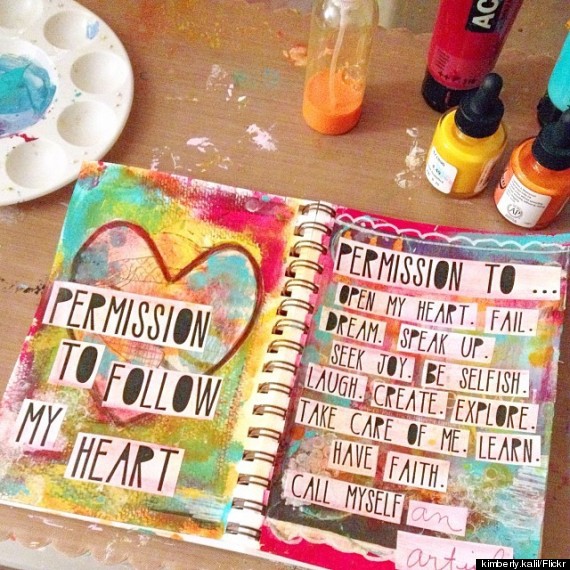 PERMISSION
TO FOLLOW
MY HEART
PERMISSION TO ...
OPEN MY HEART. FAIL.
DREAM. SPEAK UP.
SEEK JOY. BE SELFISH.
LAUGH. CREATE. EXPLORE.
TAKE CARE OF ME. LEARN.
HAVE FAITH.
CALL MYSELF an
AC
AP
kimberly.kalil/Flickr